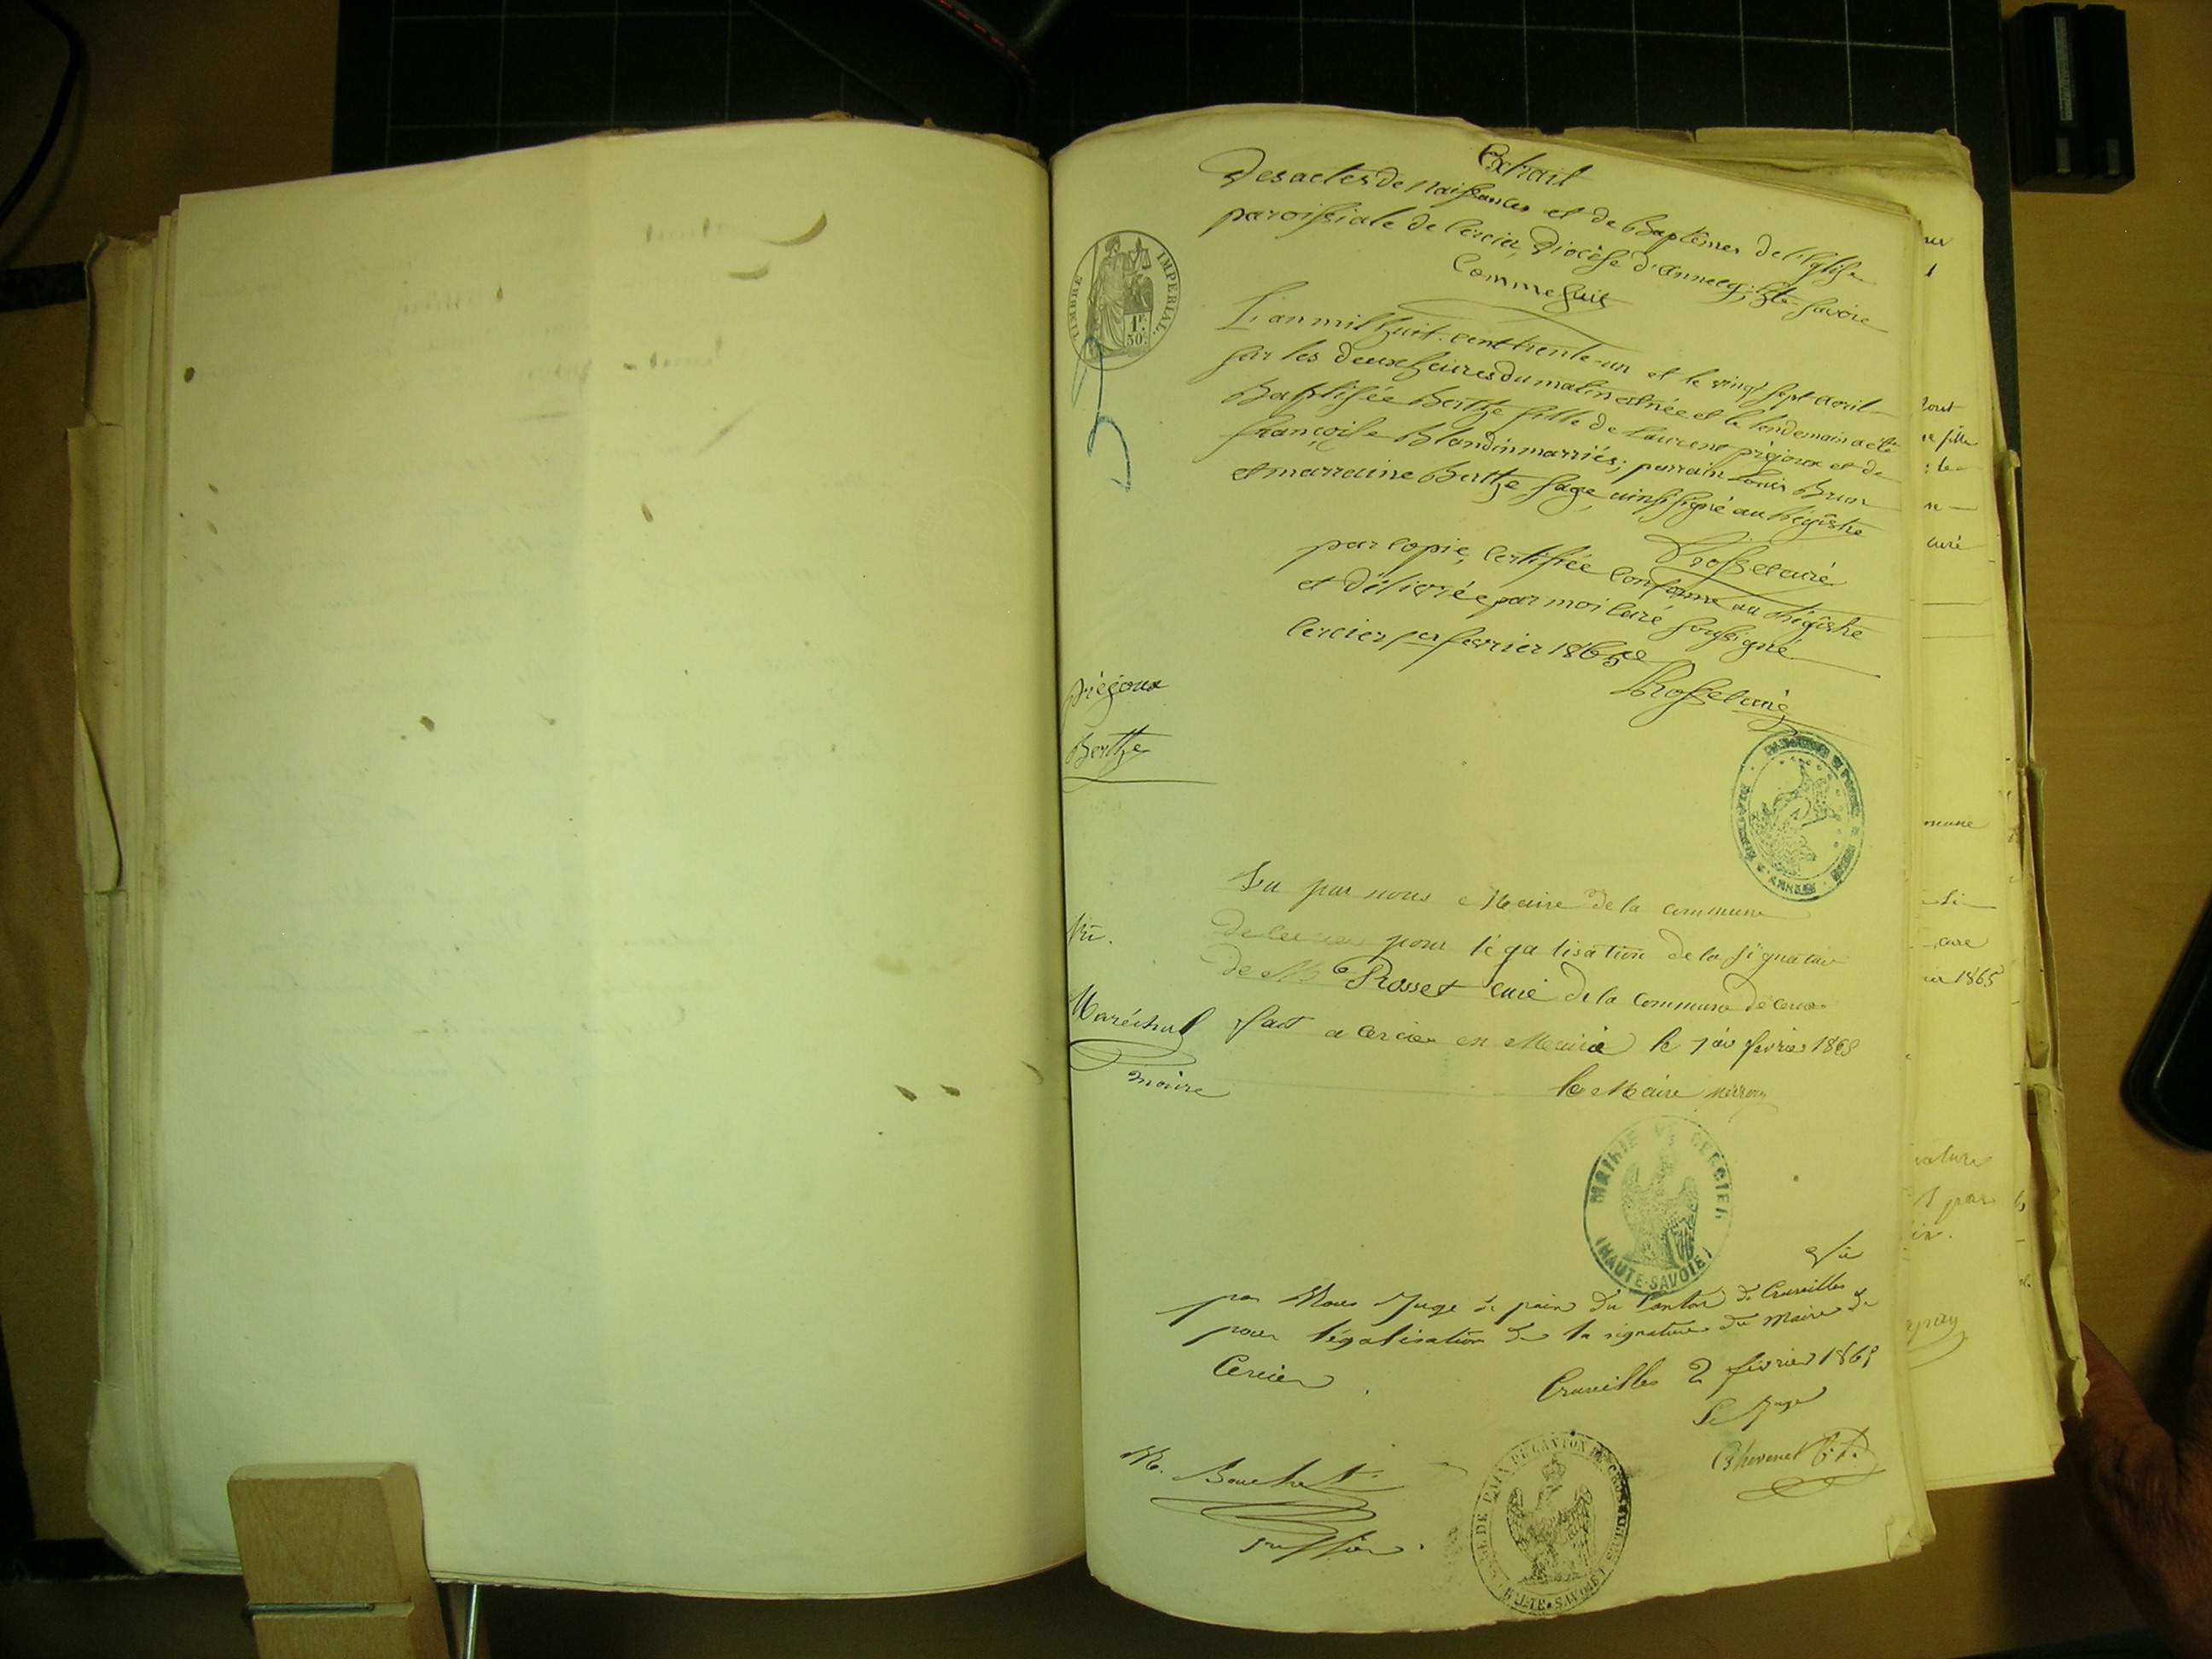 Extrait
Des actes de Naissances et de Baptêmes de l'Eglise
paroissiale de Cercier, Diocèse d'Annecy, hte Savoie
Comme suit
L'an mil huit-cent trente-un et le vingt sept avril
sur les deux heures du matin est née et le lendemain a été
Baptisée Berthe fille de Laurent préjoux et de
françoise Blandin marriés; parrain Louis Brun
et marraine Berthe Sage, ainsi signé au Régistre
Rosset curé
par copie, certifiée conforme au Régistre
et délivrée par moi curé soussigné
Cercier 1er fevrier 1865
Rosset curé
préjoux
Berthe
TIMBRE IMPERIAL
1F. 50c.
Vu par nous Maire de la commune
de Cercier pour légalisation de la signature
de Mr Rosset curé de la commune de Cercier
fait a Cercier en Mairie le 1er fevrier 1865
le Maire
Vu.
Maréchal
maire
MAIRIE DE CERCIER
(HAUTE-SAVOIE)
Vu
par Nous Juge de paix du Canton de Cruseilles
pour légalisation de la signature du Maire de
Cercier.
Cruseilles 2 février 1865
Le Juge
M. Bouchet
greffier.
DE PAIX DU CANTON DE CRUSEILLES
HAUTE-SAVOIE
curé
1865